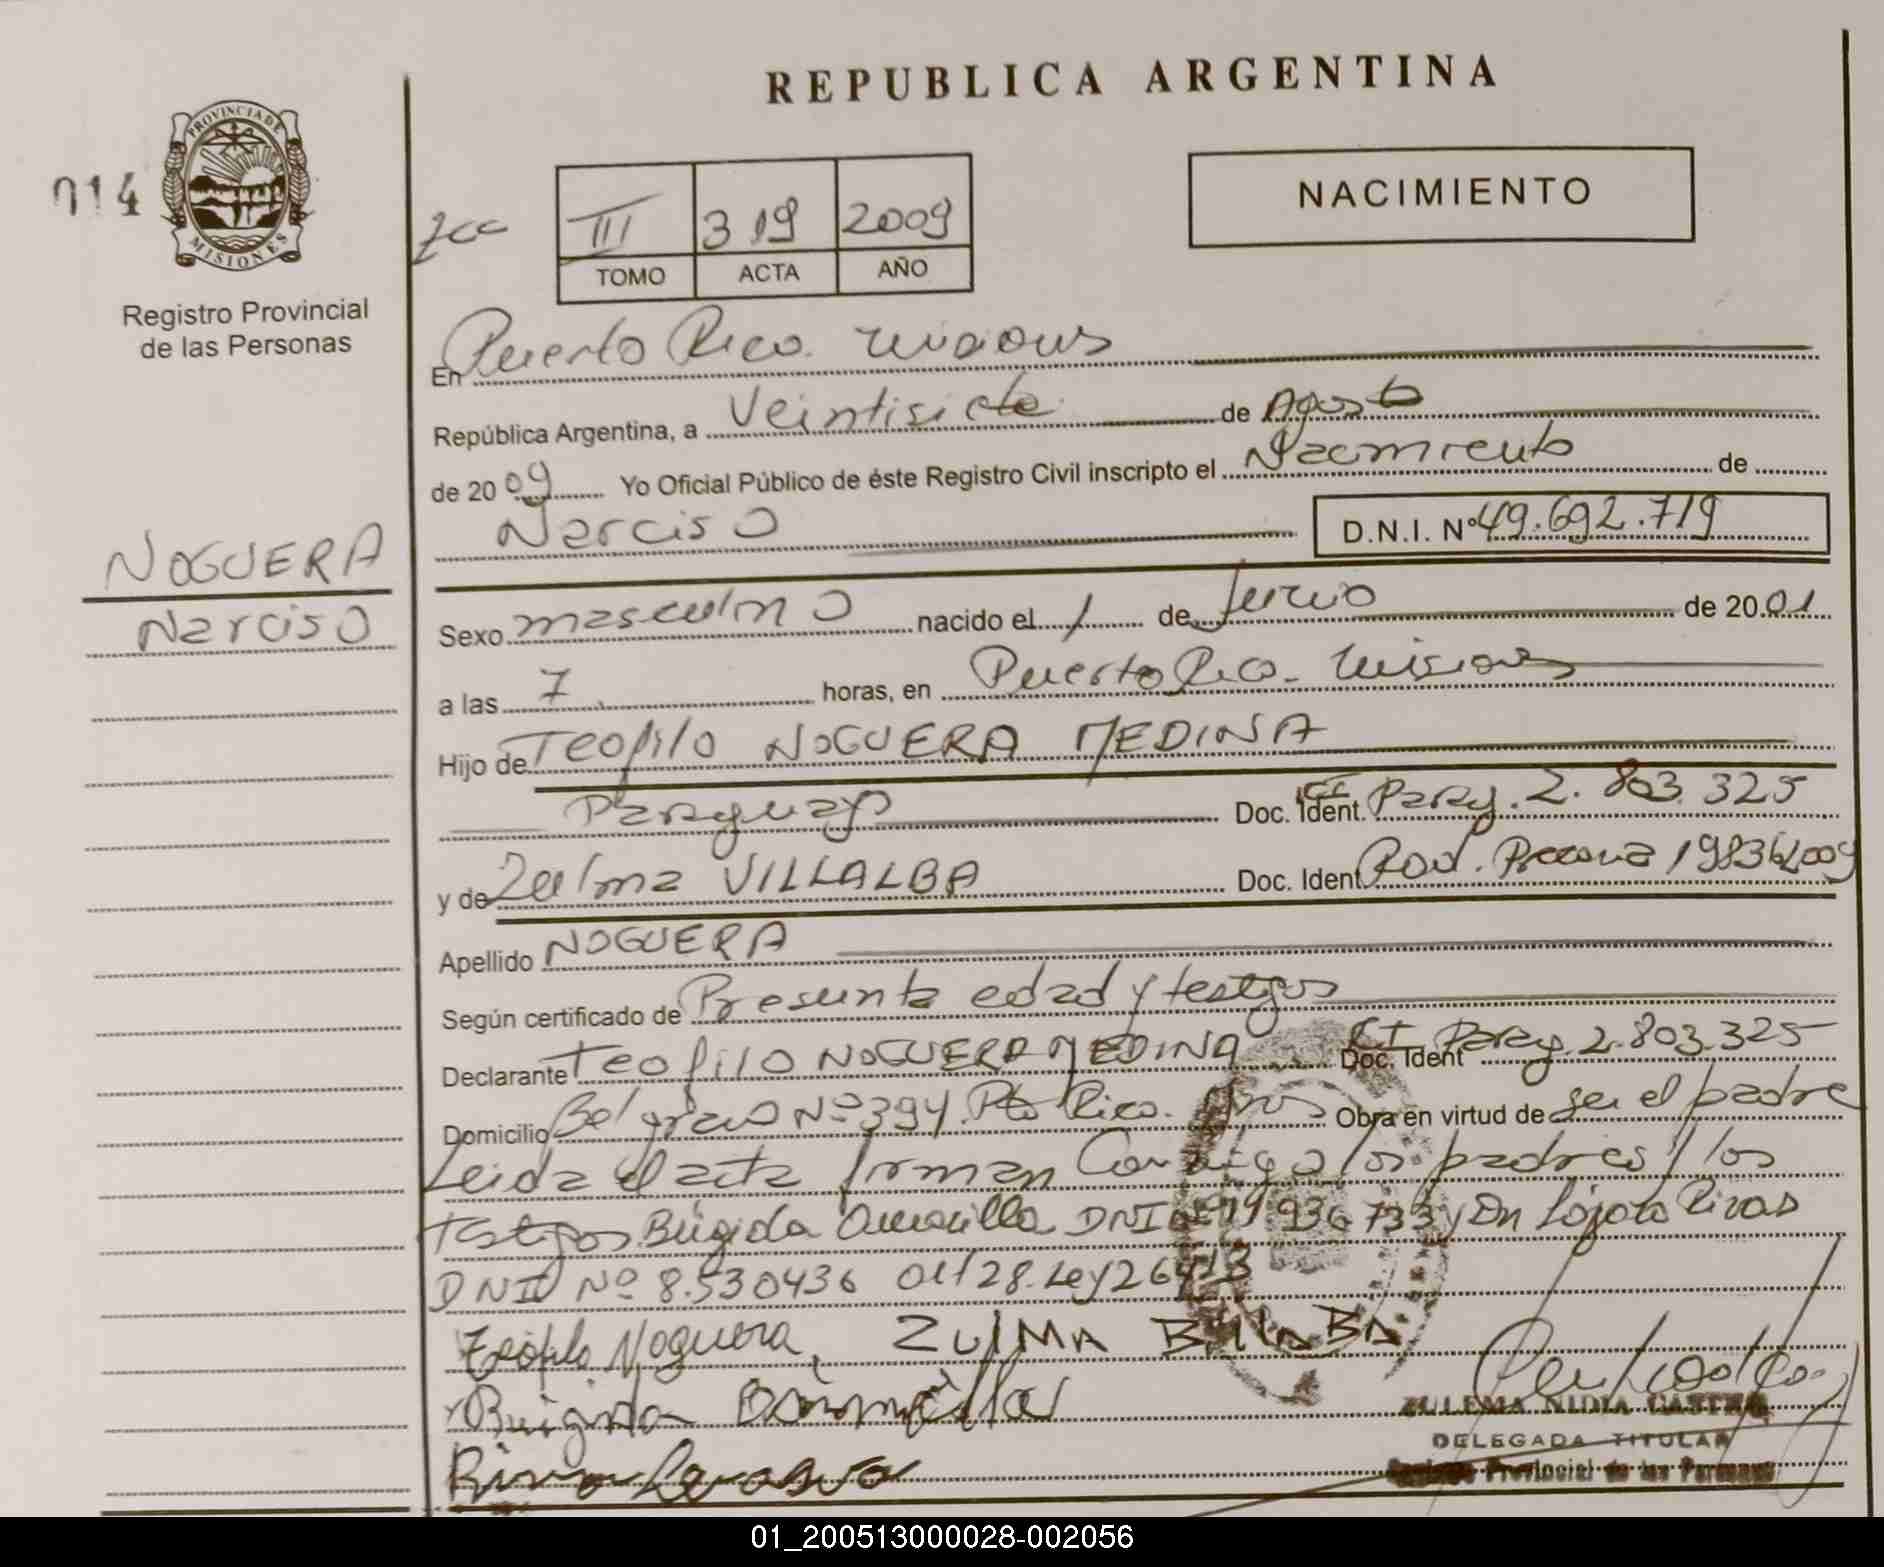 REPUBLICA ARGENTINA
PROVINCIA DE
MISIONES
014
Registro Provincial
de las Personas
III 319 2009
TOMO ACTA AÑO
NACIMIENTO
En Puerto Rico. Misiones
República Argentina, a Veintisiete de Agosto
de 2009 Yo Oficial Público de éste Registro Civil inscripto el Nacimiento de
Narciso D.N.I. Nº 49.692.719
NOGUERA
Narciso
Sexo masculino nacido el 1 de Junio de 2001
a las 7 horas, en Puerto Rico - Misiones
Hijo de Teofilo NOGUERA MEDINA
Paraguayo Doc. Ident. CI Paray. 2.803.325
y de Zulma VILLALBA Doc. Ident
Apellido NOGUERA
Según certificado de Presunta edad y testigos
Declarante Teofilo NOGUERA MEDINA Doc. Ident CI Paray. 2.803.325
Domicilio Belgrano Nº 394. Pto Rico. Mnes Obra en virtud de ser el padre
Leida el acta firman Conmigo los padres y los
testigos Brigida Amarilla DNI 936 733 y Rivas
DNI Nº 8.530436 Art 28. Ley 26413
Teófilo Noguera, ZULMA
Brigida
ZULEMA NIDIA CASTRO
DELEGADA TITULAR
Registro Provincial de las Personas
01_200513000028-002056